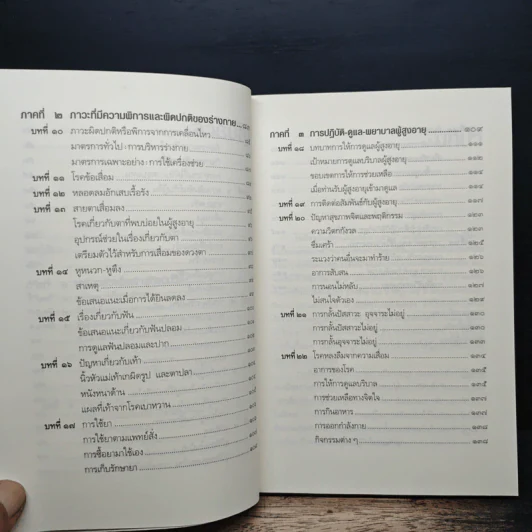 ภาคที่ ๒ ภาวะที่มีความพิการและผิดปกติของร่างกาย
บทที่ ๑๐ ภาวะผิดปกติหรือพิการจากการเคลื่อนไหว
มาตรการทั่วไป : การบริหารร่างกาย
มาตรการเฉพาะอย่าง : การใช้เครื่องช่วย
บทที่ ๑๑ โรคข้อเสื่อม
บทที่ ๑๒ หลอดลมอักเสบเรื้อรัง
บทที่ ๑๓ สายตาเสื่อมลง
โรคเกี่ยวกับตาที่พบบ่อยในผู้สูงอายุ
อุปกรณ์ช่วยในเรื่องเกี่ยวกับตา
เตรียมตัวไว้สำหรับการเสื่อมของดวงตา
บทที่ ๑๔ หูหนวก-หูตึง
สาเหตุ
ข้อเสนอแนะเมื่อการได้ยินลดลง
บทที่ ๑๕ เรื่องเกี่ยวกับฟัน
ข้อเสนอแนะเกี่ยวกับฟันปลอม
การดูแลฟันปลอมและปาก
บทที่ ๑๖ ปัญหาเกี่ยวกับเท้า
นิ้วหัวแม่เท้าเกผิดรูป และตาปลา
หนังหนาด้าน
แผลที่เท้าจากโรคเบาหวาน
บทที่ ๑๗ การใช้ยา
การใช้ยาตามแพทย์สั่ง
การซื้อยามาใช้เอง
การเก็บรักษายา
ภาคที่ ๓ การปฏิบัติ-ดูแล-พยาบาลผู้สูงอายุ ๑๐๙
บทที่ ๑๘ บทบาทการให้การดูแลผู้สูงอายุ ๑๑๑
เป้าหมายการดูแลบริบาลผู้สูงอายุ ๑๑๒
ขอบเขตการให้การช่วยเหลือ
เมื่อท่านรับผู้สูงอายุเข้ามาดูแล
บทที่ ๑๙ การติดต่อสัมพันธ์กับผู้สูงอายุ
บทที่ ๒๐ ปัญหาสุขภาพจิตและพฤติกรรม ๑๒๓
ความวิตกกังวล ๑๒๓
ซึมเศร้า ๑๒๕
ระแวงว่าคนอื่นจะมาทำร้าย ๑๒๖
อาการสับสน ๑๒๖
การนอนไม่หลับ ๑๒๗
ไม่สนใจตัวเอง ๑๒๘
บทที่ ๒๑ การกลั้นปัสสาวะ อุจจาระไม่อยู่ ๑๓๐
การกลั้นปัสสาวะไม่อยู่ ๑๓๐
การกลั้นอุจจาระไม่อยู่
บทที่ ๒๒ โรคหลงลืมจากความเสื่อม ๑๓๔
อาการของโรค
การให้การดูแลบริบาล ๑๓๕
การช่วยเหลือทางจิตใจ ๑๓๗
การกินอาหาร ๑๓๗
การออกกำลังกาย ๑๓๘
กิจกรรมต่าง ๆ ๑๓๘